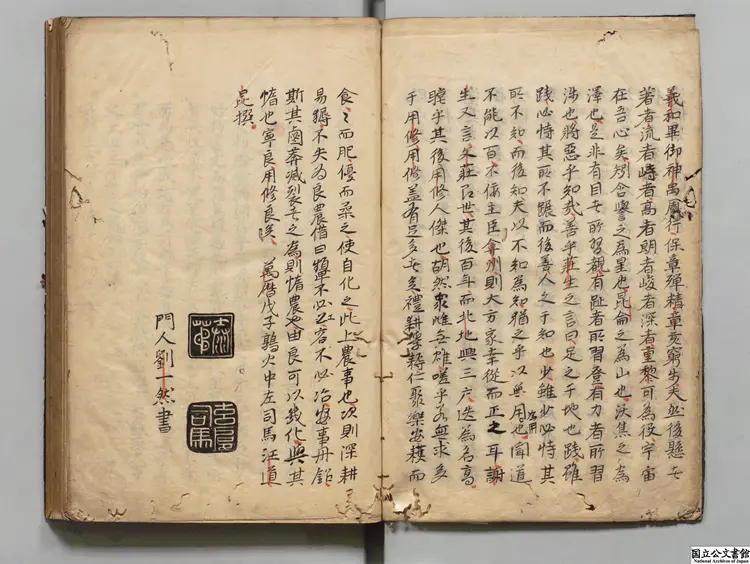 羲和畢御神禹周行保章殫精章亥窮步夫然後懸者
著者流者峙者高者朗者峻者深者重黎可為役宇宙
在吾心矣矧含譽之為星也昆侖之為山也沃焦之為
澤也是非有目者所習觀有趾者所習登有力者所習
涉也將惡乎知哉善乎莊生之言曰足之于地也踐雖
踐必恃其所不蹍而後善人之于知也少雖少必恃其
所不知而後知夫以不知為知猶之乎以無用也聞道
為用
不能以百不佞主臣弇州則大方家幸從而正之耳謝
生又言蒙莊名世其後百年而北地興三六迭為名高
瞠乎其後用修人傑也胡然衆雌無雄嗟乎無求多
于用修用修蓋有足多者矣禮耕學耨仁聚樂安穫而
食之而肥優而柔之使自化之此上農事也次則深耕
易耨不失為良農借曰犨不必谷不必冶安事丹鉛
斯其鹵莽滅裂者之為則惰農也由良可以幾化與其
惰也寧良用修良哉 萬曆戊子鶉火中左司馬汪道
昆撰
門人劉一然書
司馬
国立公文書館
National Archives of Japan